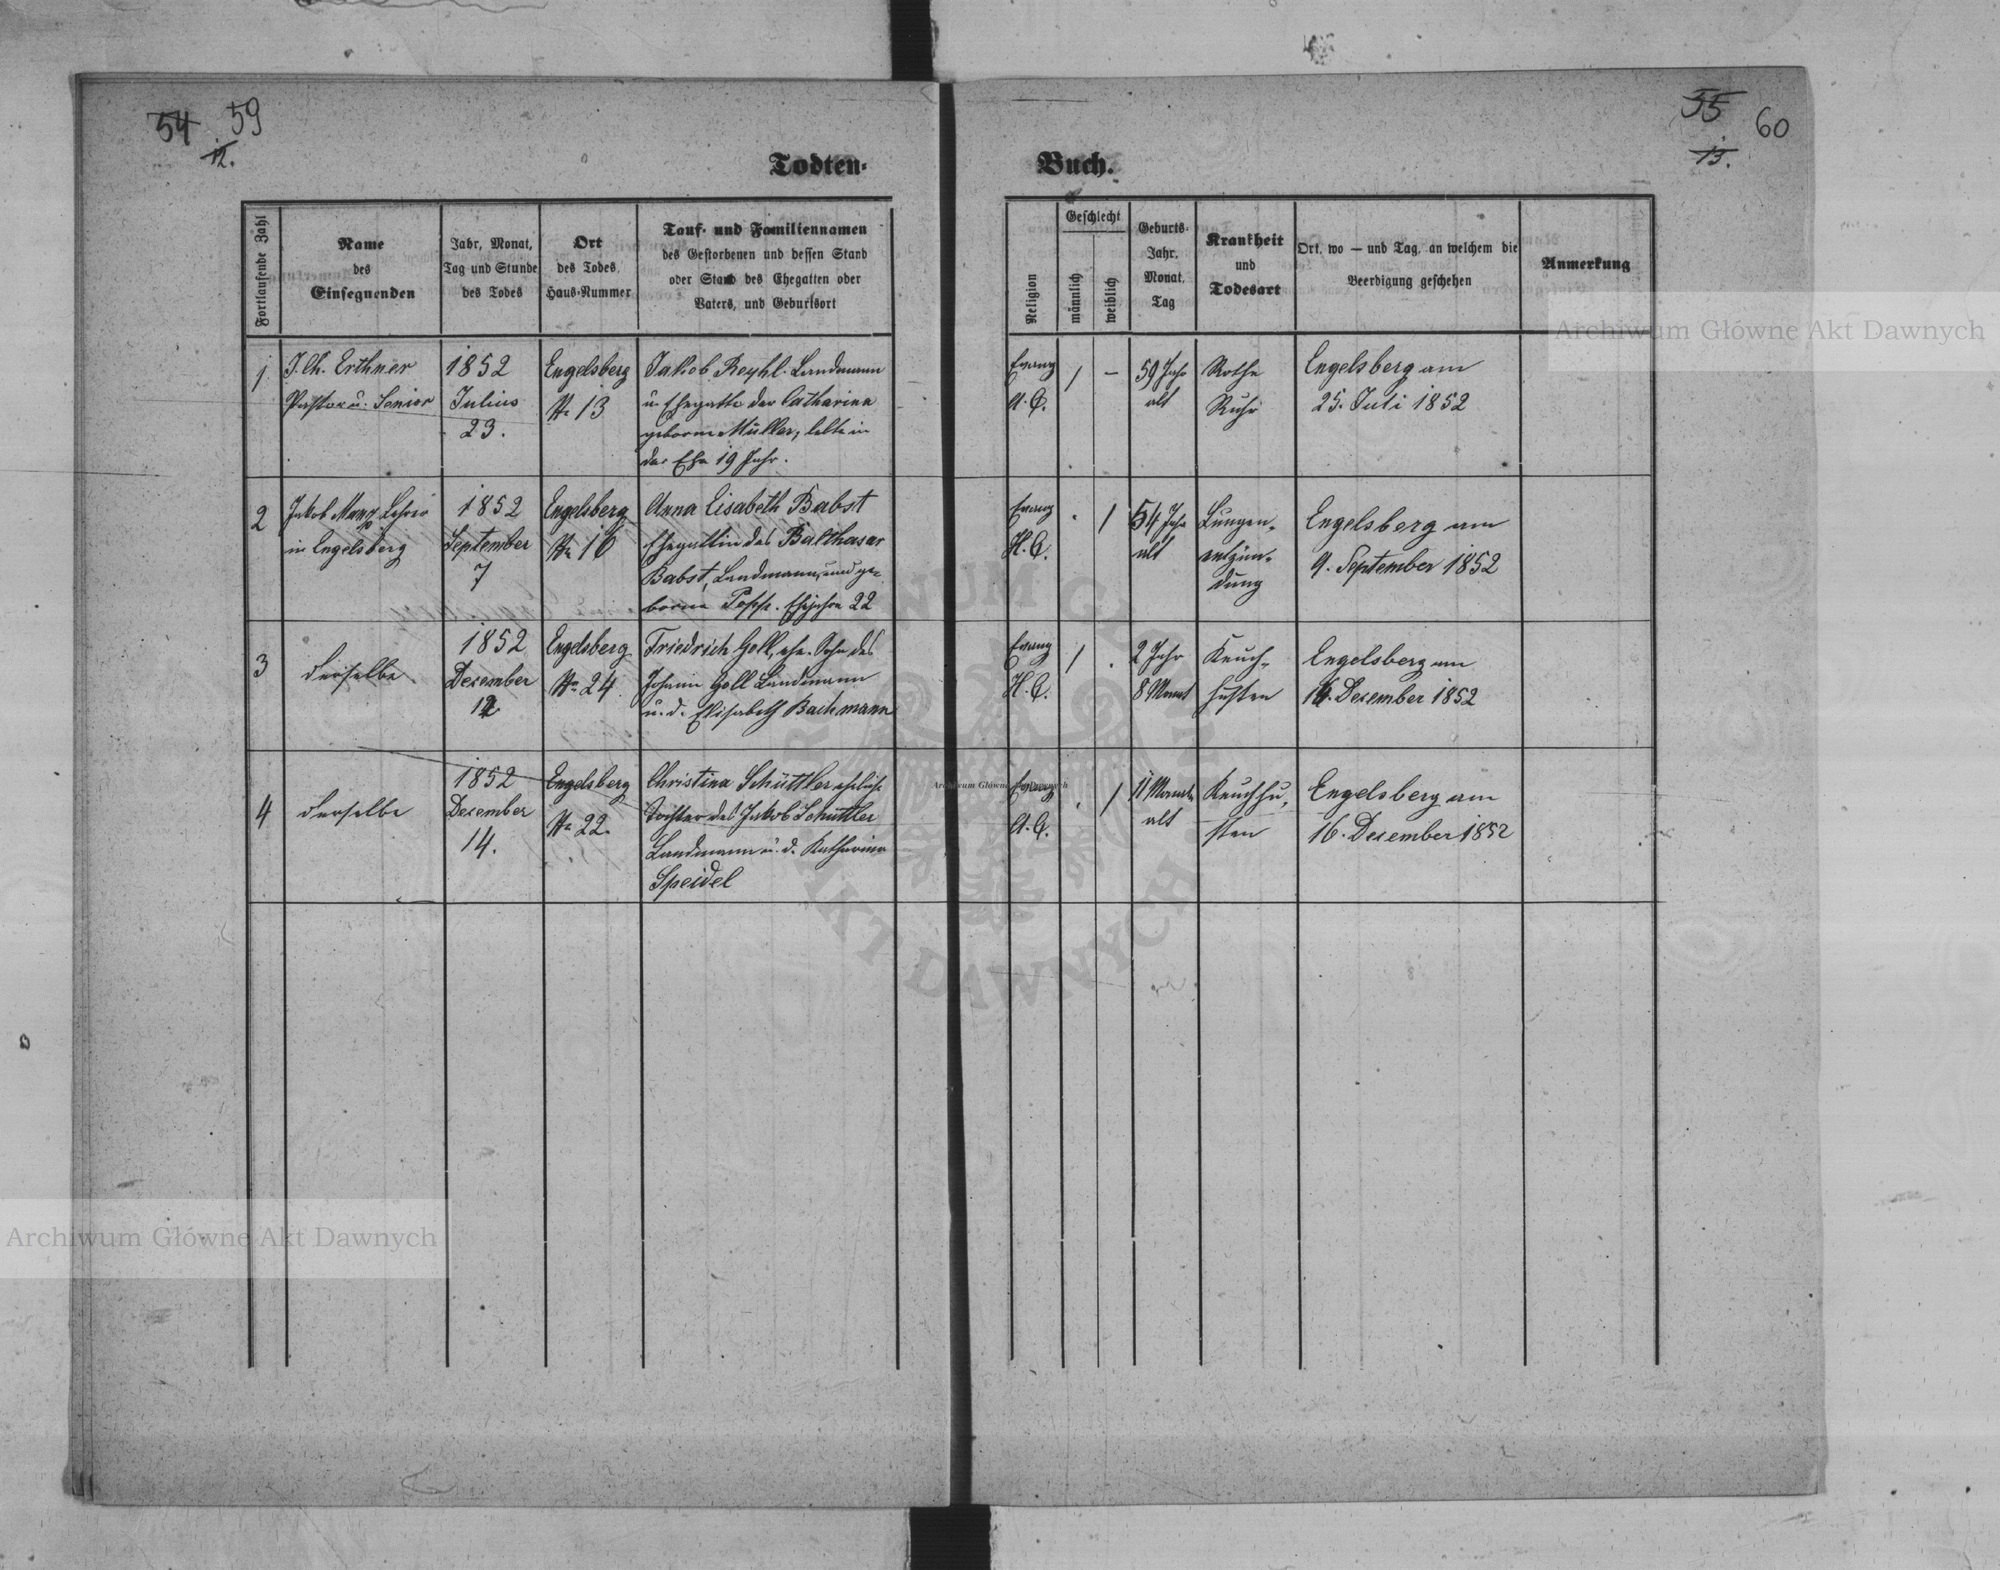 54 59
12.
55 60
13.
Todten-Buch.
Fortlaufende Zahl
Name
des
Einsegnenden
Jahr, Monat,
Tag und Stunde
des Todes
Ort
des Todes,
Haus-Nummer
Tauf- und Familiennamen
des Gestorbenen und dessen Stand
oder Stand des Ehegatten oder
Vaters, und Geburtsort
Religion
Geschlecht
männlich
weiblich
Geburts-
Jahr,
Monat,
Tag
Krankheit
und
Todesart
Ort, wo — und Tag, an welchem die
Beerdigung geschehen
Anmerkung
1
J. Ch. Erthner
Pastor u. Senior
1852
Julius
23.
Engelsberg
No 13
Jakob Reyhl. Landmann
u. Ehegatte der Catharina
geborne Müller, lebte in
der Ehe 19 Jahr.
Evang
A. C.
/
–
59 Jahr
alt
Rothe
Ruhr
Engelsberg am
25. Juli 1852
2
Jakob Manz Lehrer
in Engelsberg
1852
September
7
Engelsberg
No 16
Anna Elisabeth Babst
Ehegattin des Balthasar
Babst, Landmanns, und ge-
borne Popp. Ehejahre 22
Evang
H. C.
.
/
54 Jahr
alt
Lungen-
entzün-
dung
Engelsberg am
9. September 1852
3
derselbe
1852
Dezember
12
Engelsberg
No 24
Friedrich Goll, ehe. Sohn des
Johann Goll Landmann
u. d. Elisabeth Bachmann
Evang
H. C.
/
.
2 Jahr
8 Monat
Keuch-
husten
Engelsberg am
14. Dezember 1852
4
derselbe
1852
Dezember
14.
Engelsberg
No 22.
Christina Schüttler eheliche
Tochter des Jakob Schüttler
Landmann u. d. Katharina
Speidel
Evang
A. C.
.
/
11 Monate
alt
Keuchhu-
sten
Engelsberg am
16. Dezember 1852
Archiwum Główne Akt Dawnych
Archiwum Główne Akt Dawnych
Archiwum Główne Akt Dawnych